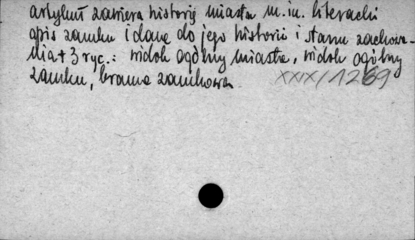 artykuł zawiera historię miasta m.in. literacki
opis zamku i dane do jego historii i stanu zachowa-
nia + 3 ryc.: widok ogólny miasta, widok ogólny
zamku, brama zamkowa.
XXIX/1269